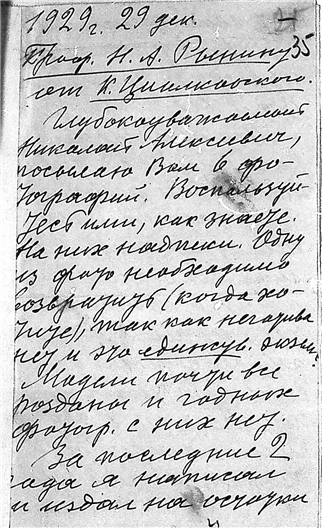 1929 г. 29 дек.
35
Проф. Н. А. Рынину
от К. Циолковского.
Глубокоуважаемый
Николай Алексеевич,
посылаю Вам 6 фо-
тографий. Воспользуй-
тесь ими, как знаете.
На них надписи. Одну
из фото необходимо
возвратить (когда хо-
тите), так как негатива
нет и это единств. экзем.
Модели почти все
розданы и годных
фотогр. с них нет.
За последние 2
года я написал
и издал на остатки